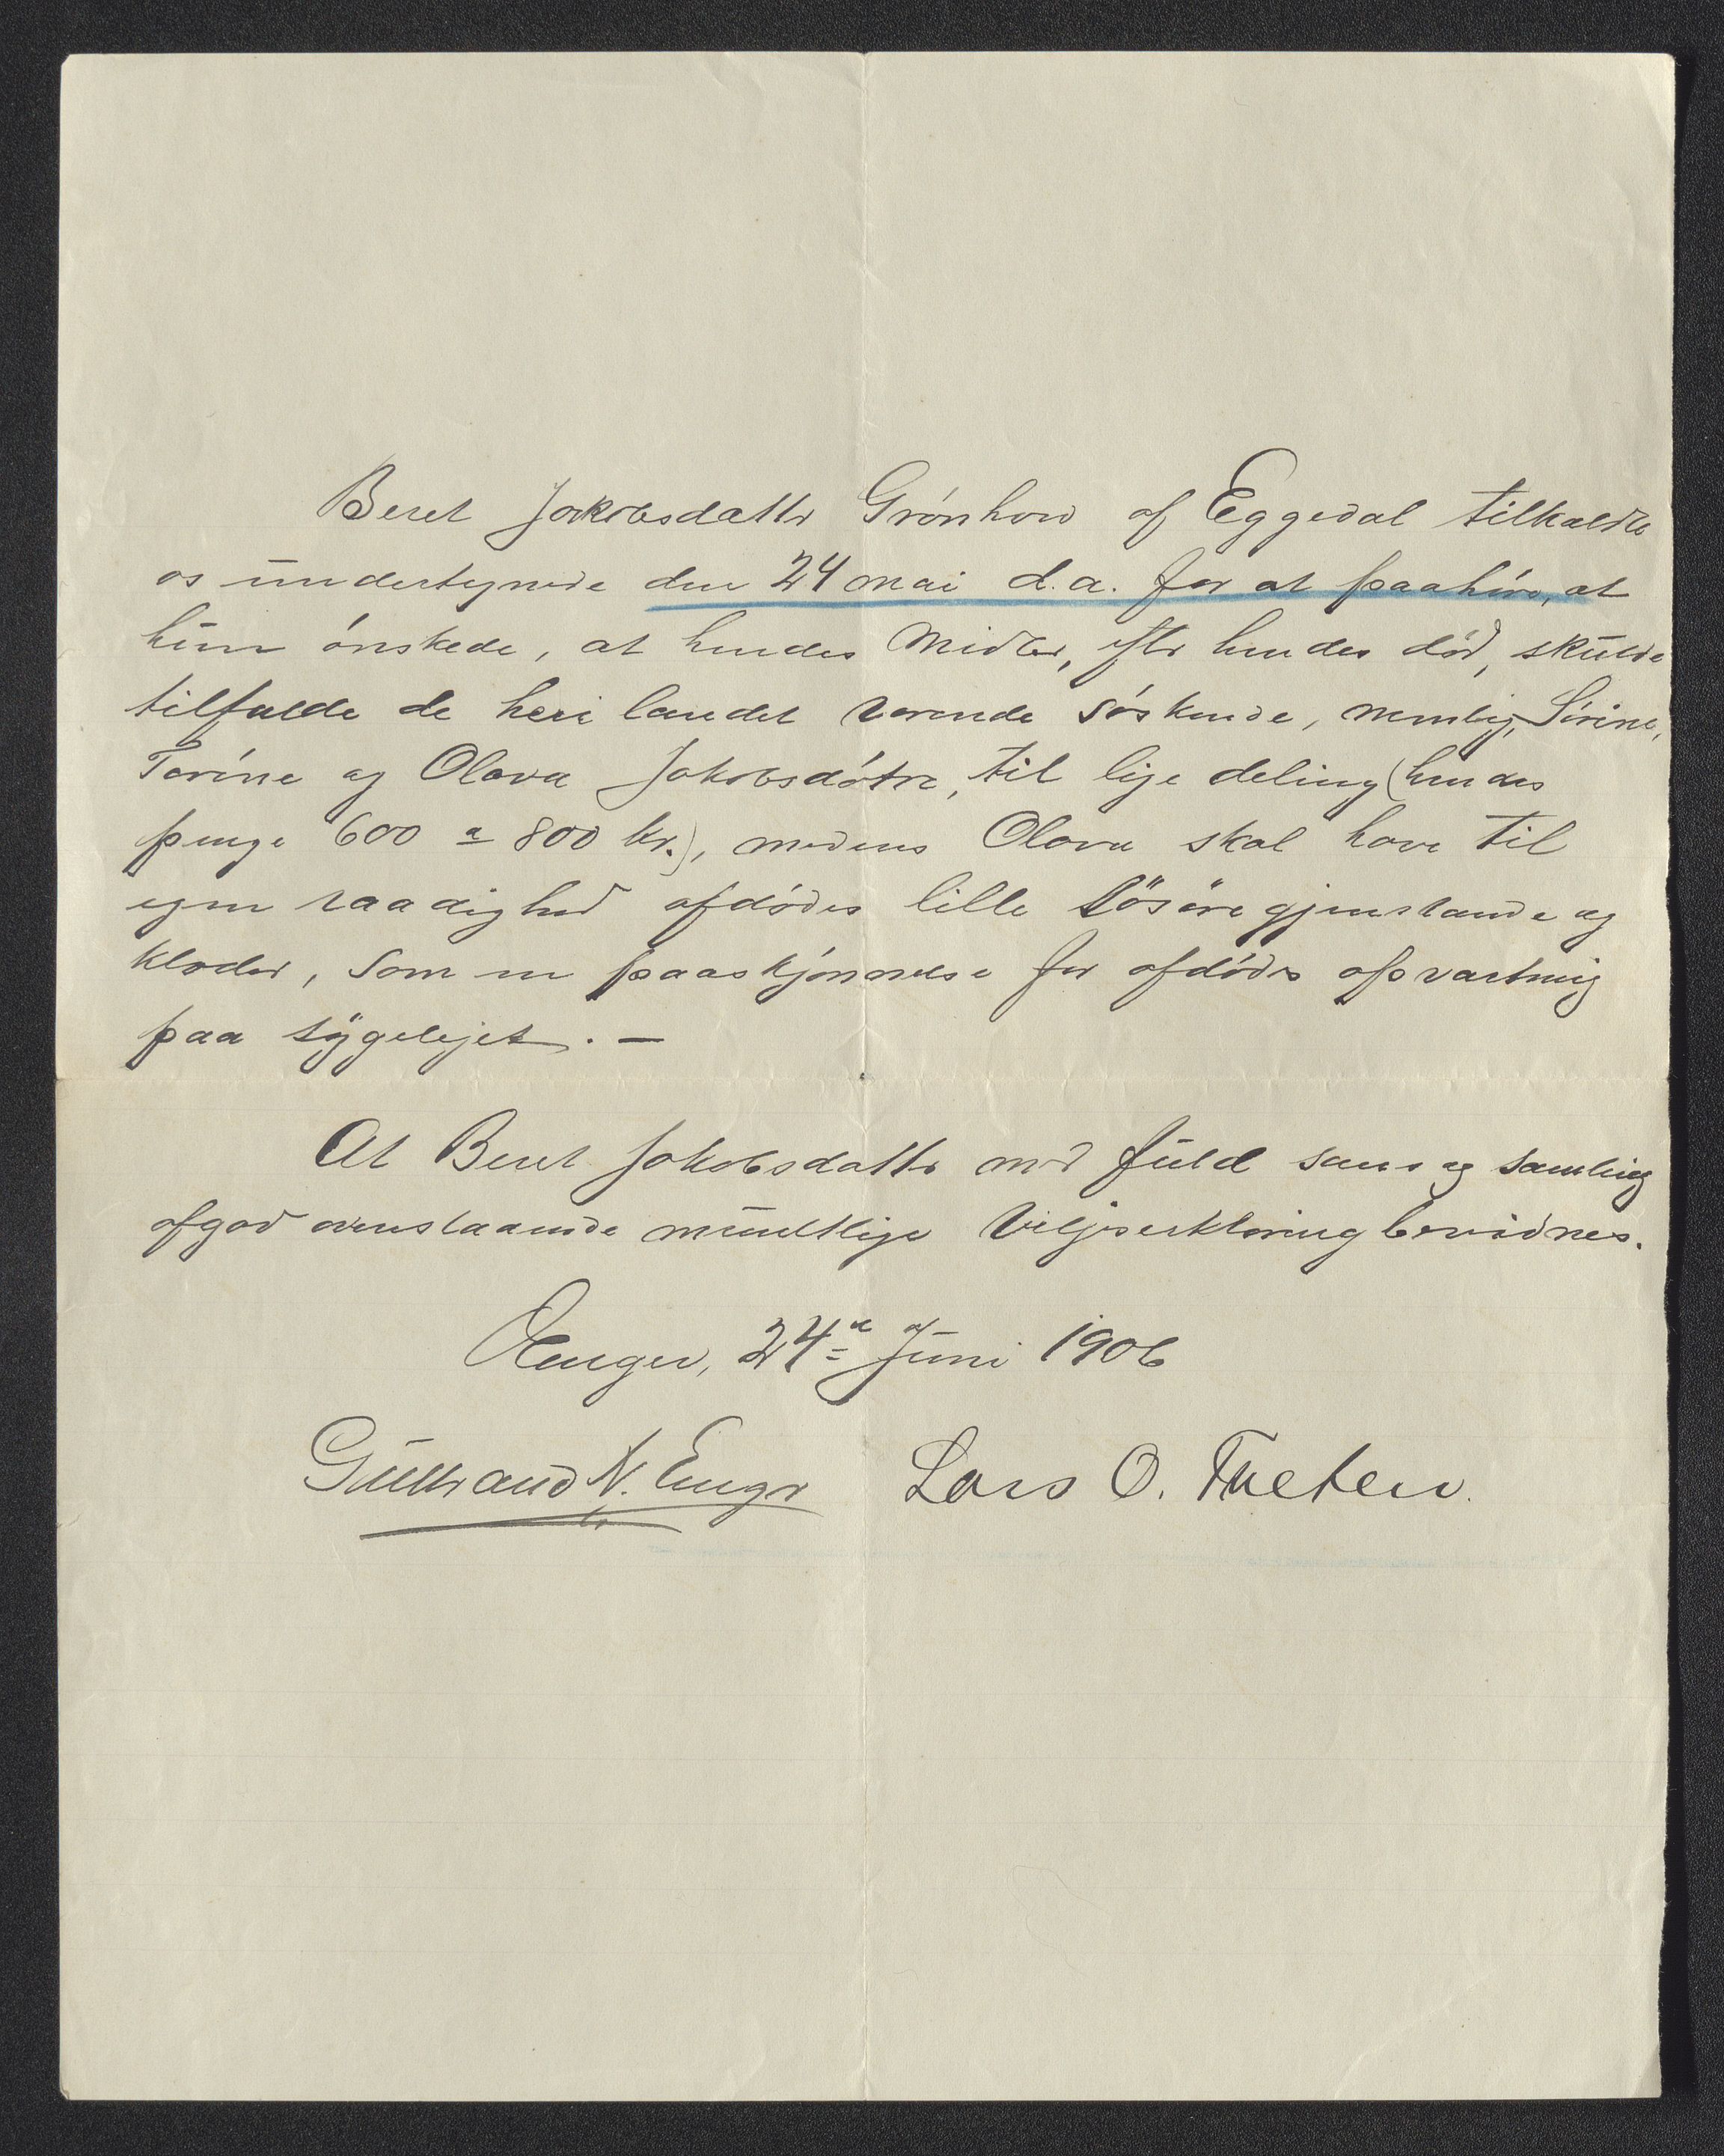 Beret Jakobsdatter Grønhov af Eggedal tilkaldte
os undertegnede den 24 mai d.a. for at paahøre, at
hun ønskede, at hendes Midler, efter hendes død, skulde
tilfalde de heri landet værende søskende, nemlig, Sørine,
Torine og Olava Jakobsdøtre, til lige deling (hendes
penge 600 a 800 kr.), medens Olava skal have til
egen raadighed afdødes lille løsøregjenstande og
klæder, som en paaskjønnelse for afdødes opvartning
paa sygelejet. —
At Beret Jakobsdatter med fuld sans og samling
afgav ovenstaaende mundtlige Viljeserklæring bevidnes.
Enger, 24de Juni 1906
Gulbrand N. Enger Lars O. Thveten.